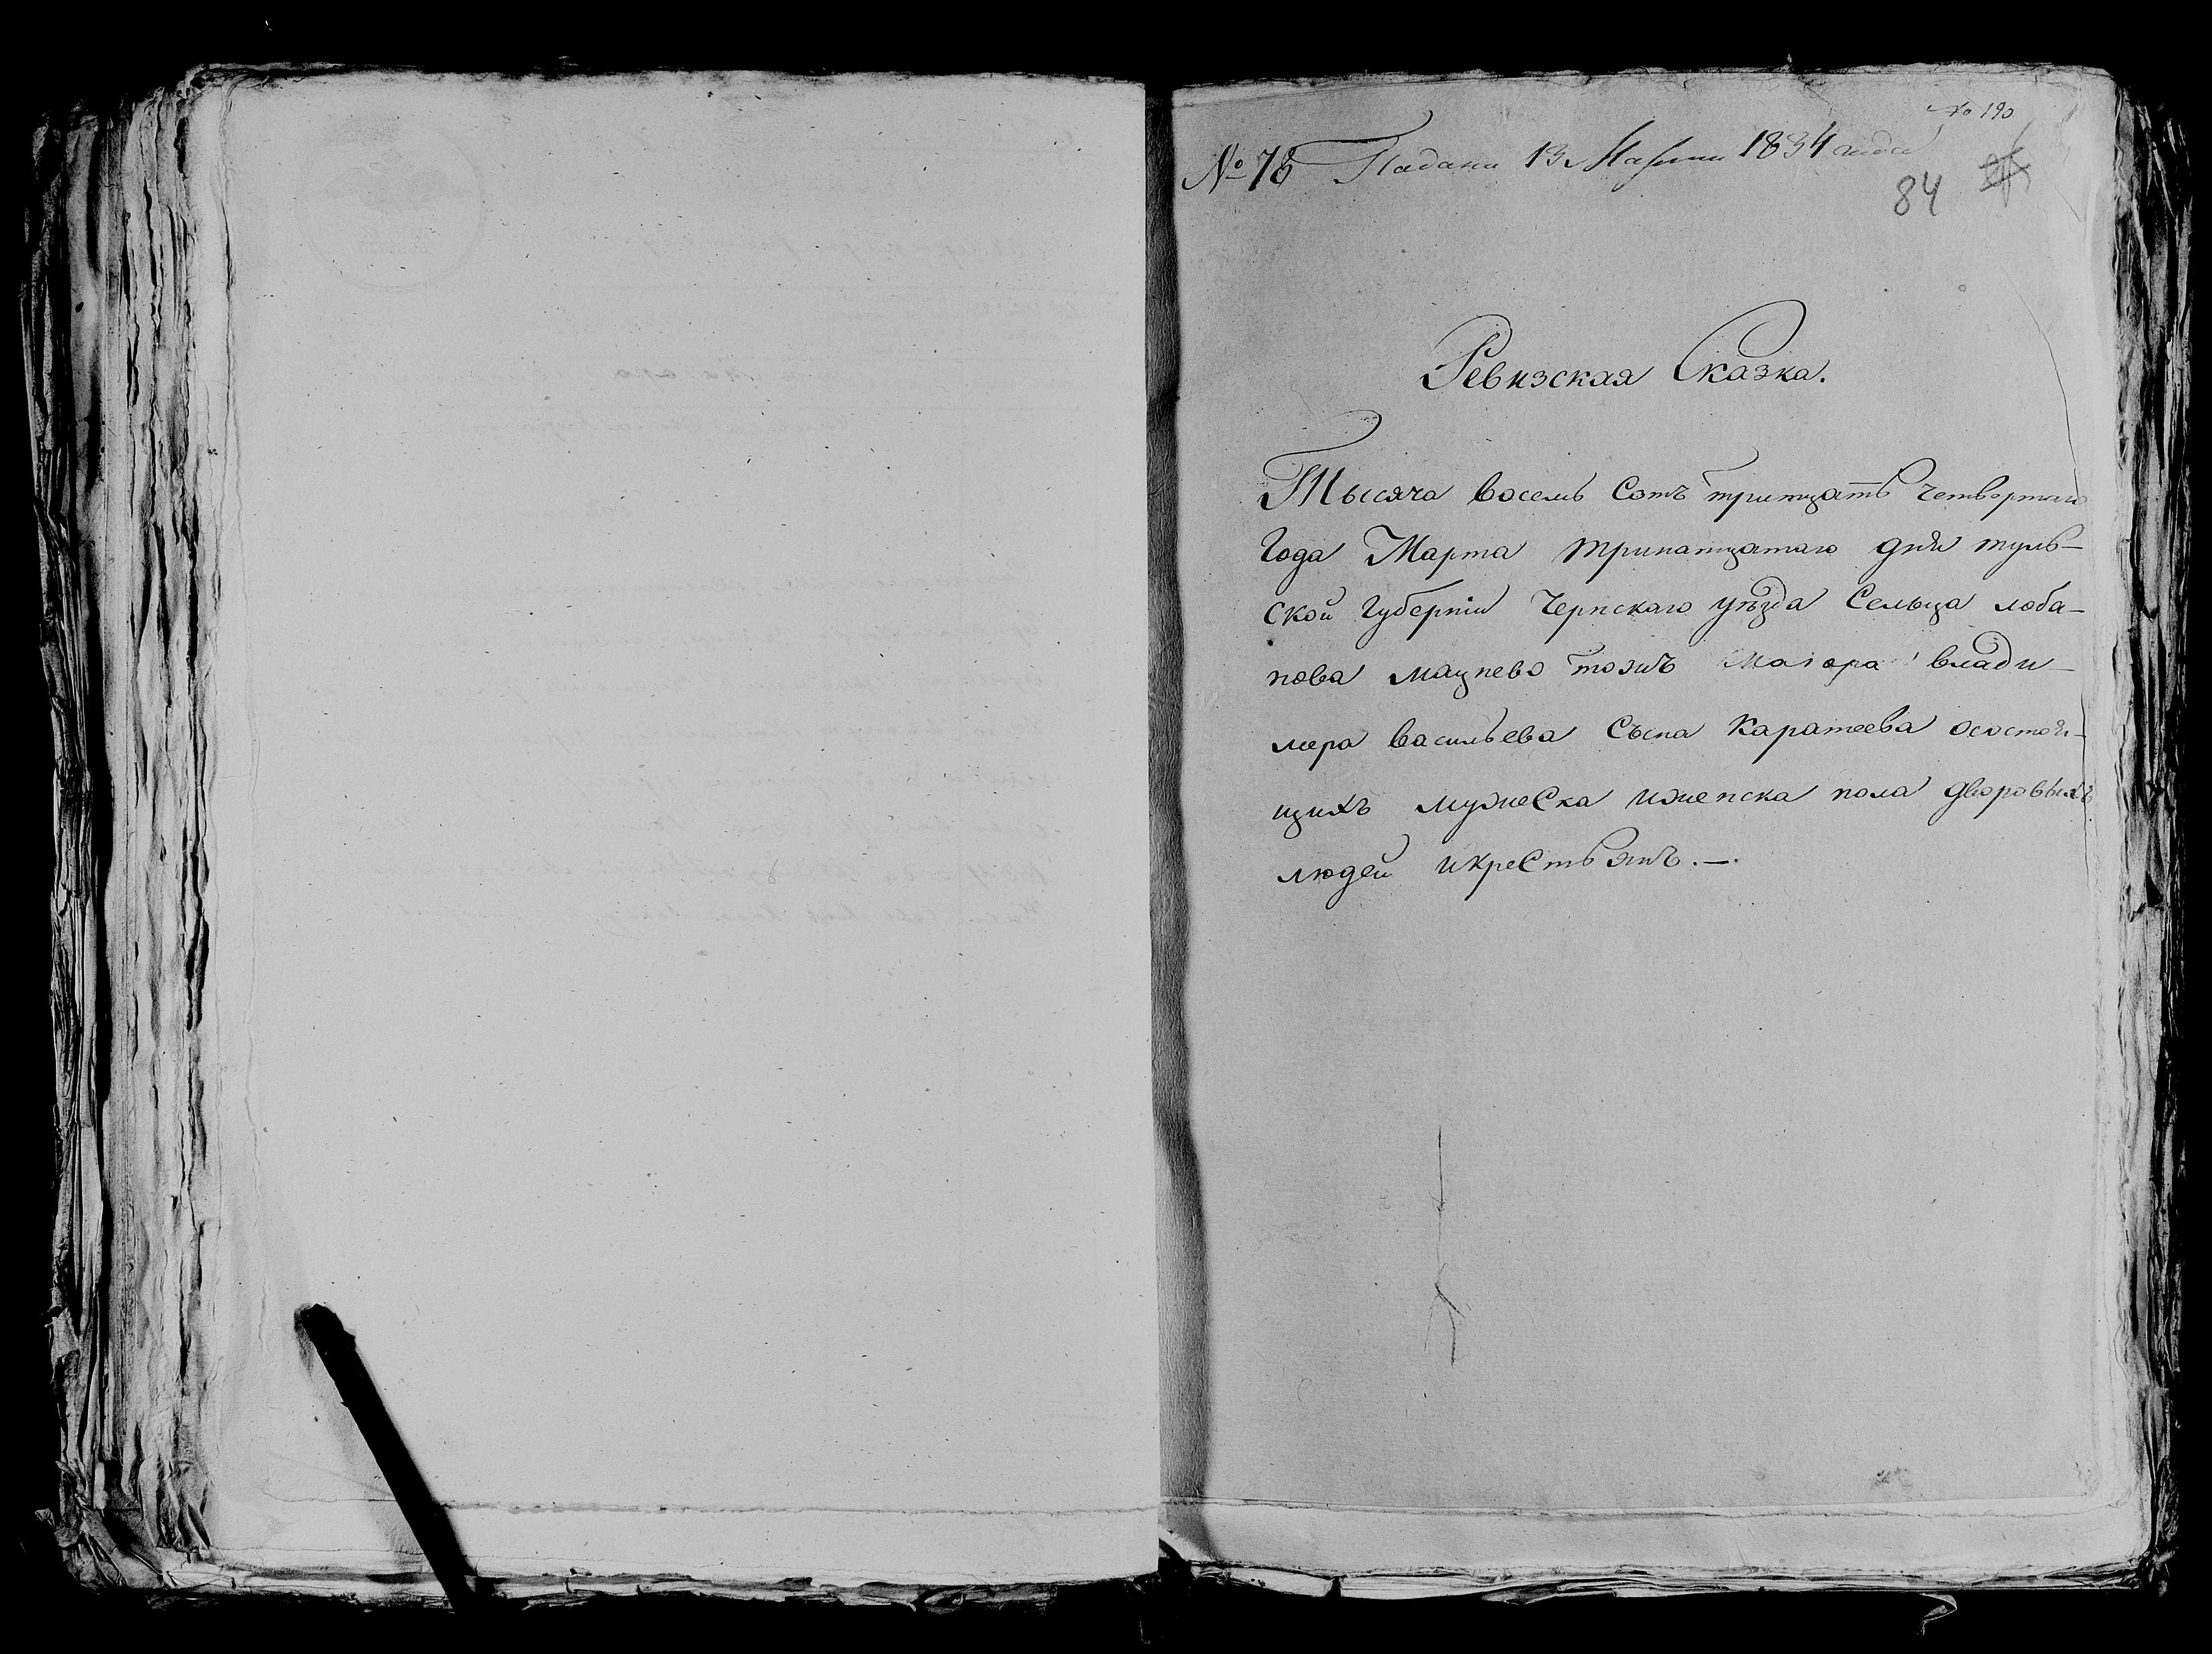 № 190
№ 78 Подана 13 Марта 1834 года
84
Ревизская Сказка.
Тысяча восемь Сотъ тритцать четвертаго
Года Марта тринатцатаго дня туль-
ской Губерніи Чернскаго уѣзда Сельца лоба-
нова мацнево тожъ маіора влади-
мера васильева Сына Каратеева осостоя-
щихъ мужеска иженска пола дворовыхъ
людей икрестьянъ.—.